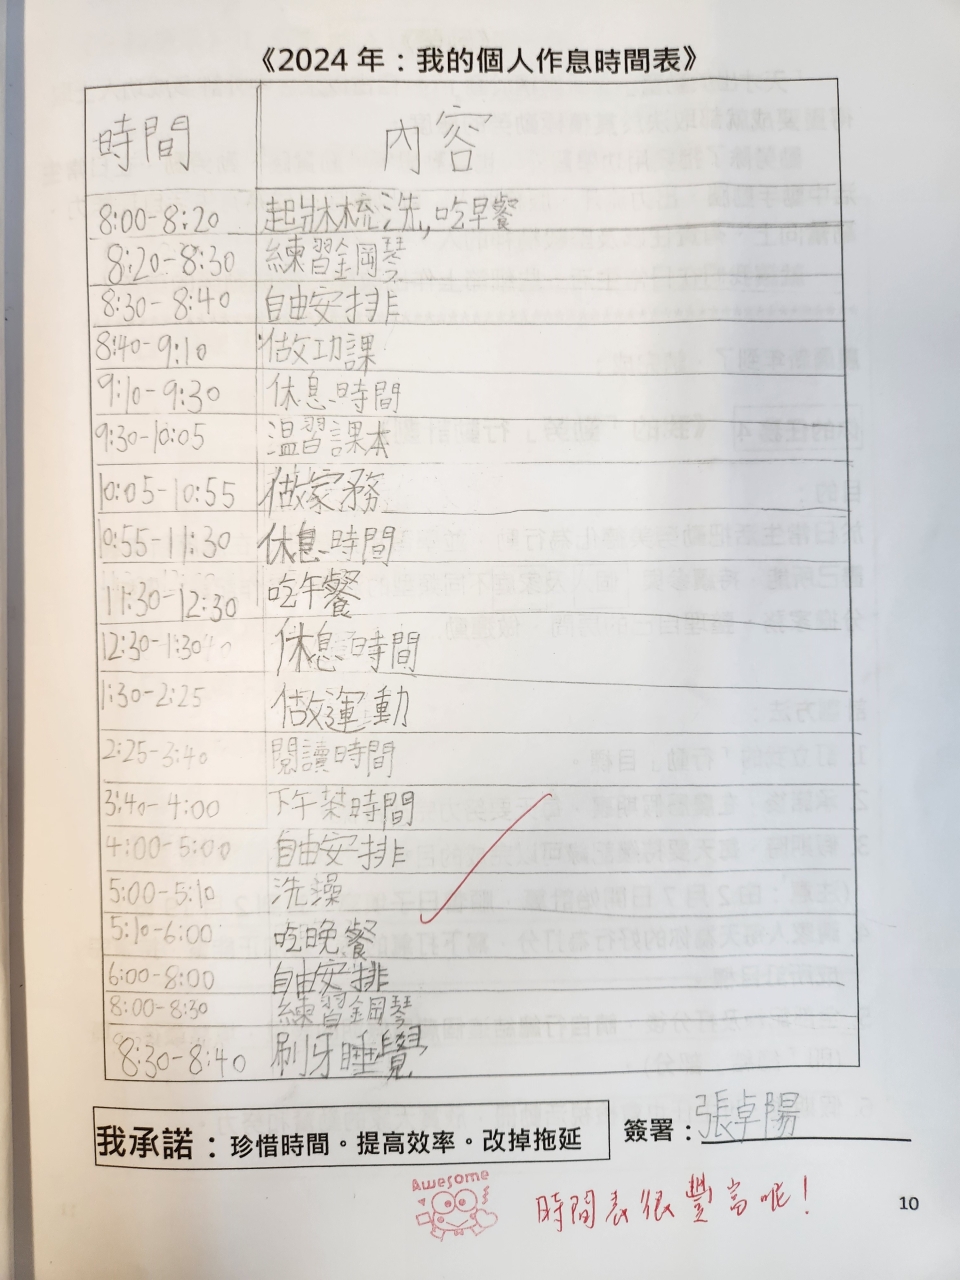 《2024 年：我的個人作息時間表》
時間 內容
8:00-8:20 起牀梳洗,吃早餐
8:20-8:30 練習鋼琴
8:30-8:40 自由安排
8:40-9:10 做功課
9:10-9:30 休息時間
9:30-10:05 溫習課本
10:05-10:55 做家務
10:55-11:30 休息時間
11:30-12:30 吃午餐
12:30-1:30 休息時間
1:30-2:25 做運動
2:25-3:40 閱讀時間
3:40-4:00 下午茶時間
4:00-5:00 自由安排
5:00-5:10 洗澡
5:10-6:00 吃晚餐
6:00-8:00 自由安排
8:00-8:30 練習鋼琴
8:30-8:40 刷牙睡覺
我承諾：珍惜時間。提高效率。改掉拖延 簽署：張卓陽
Awesome
時間表很豐富呢！
10